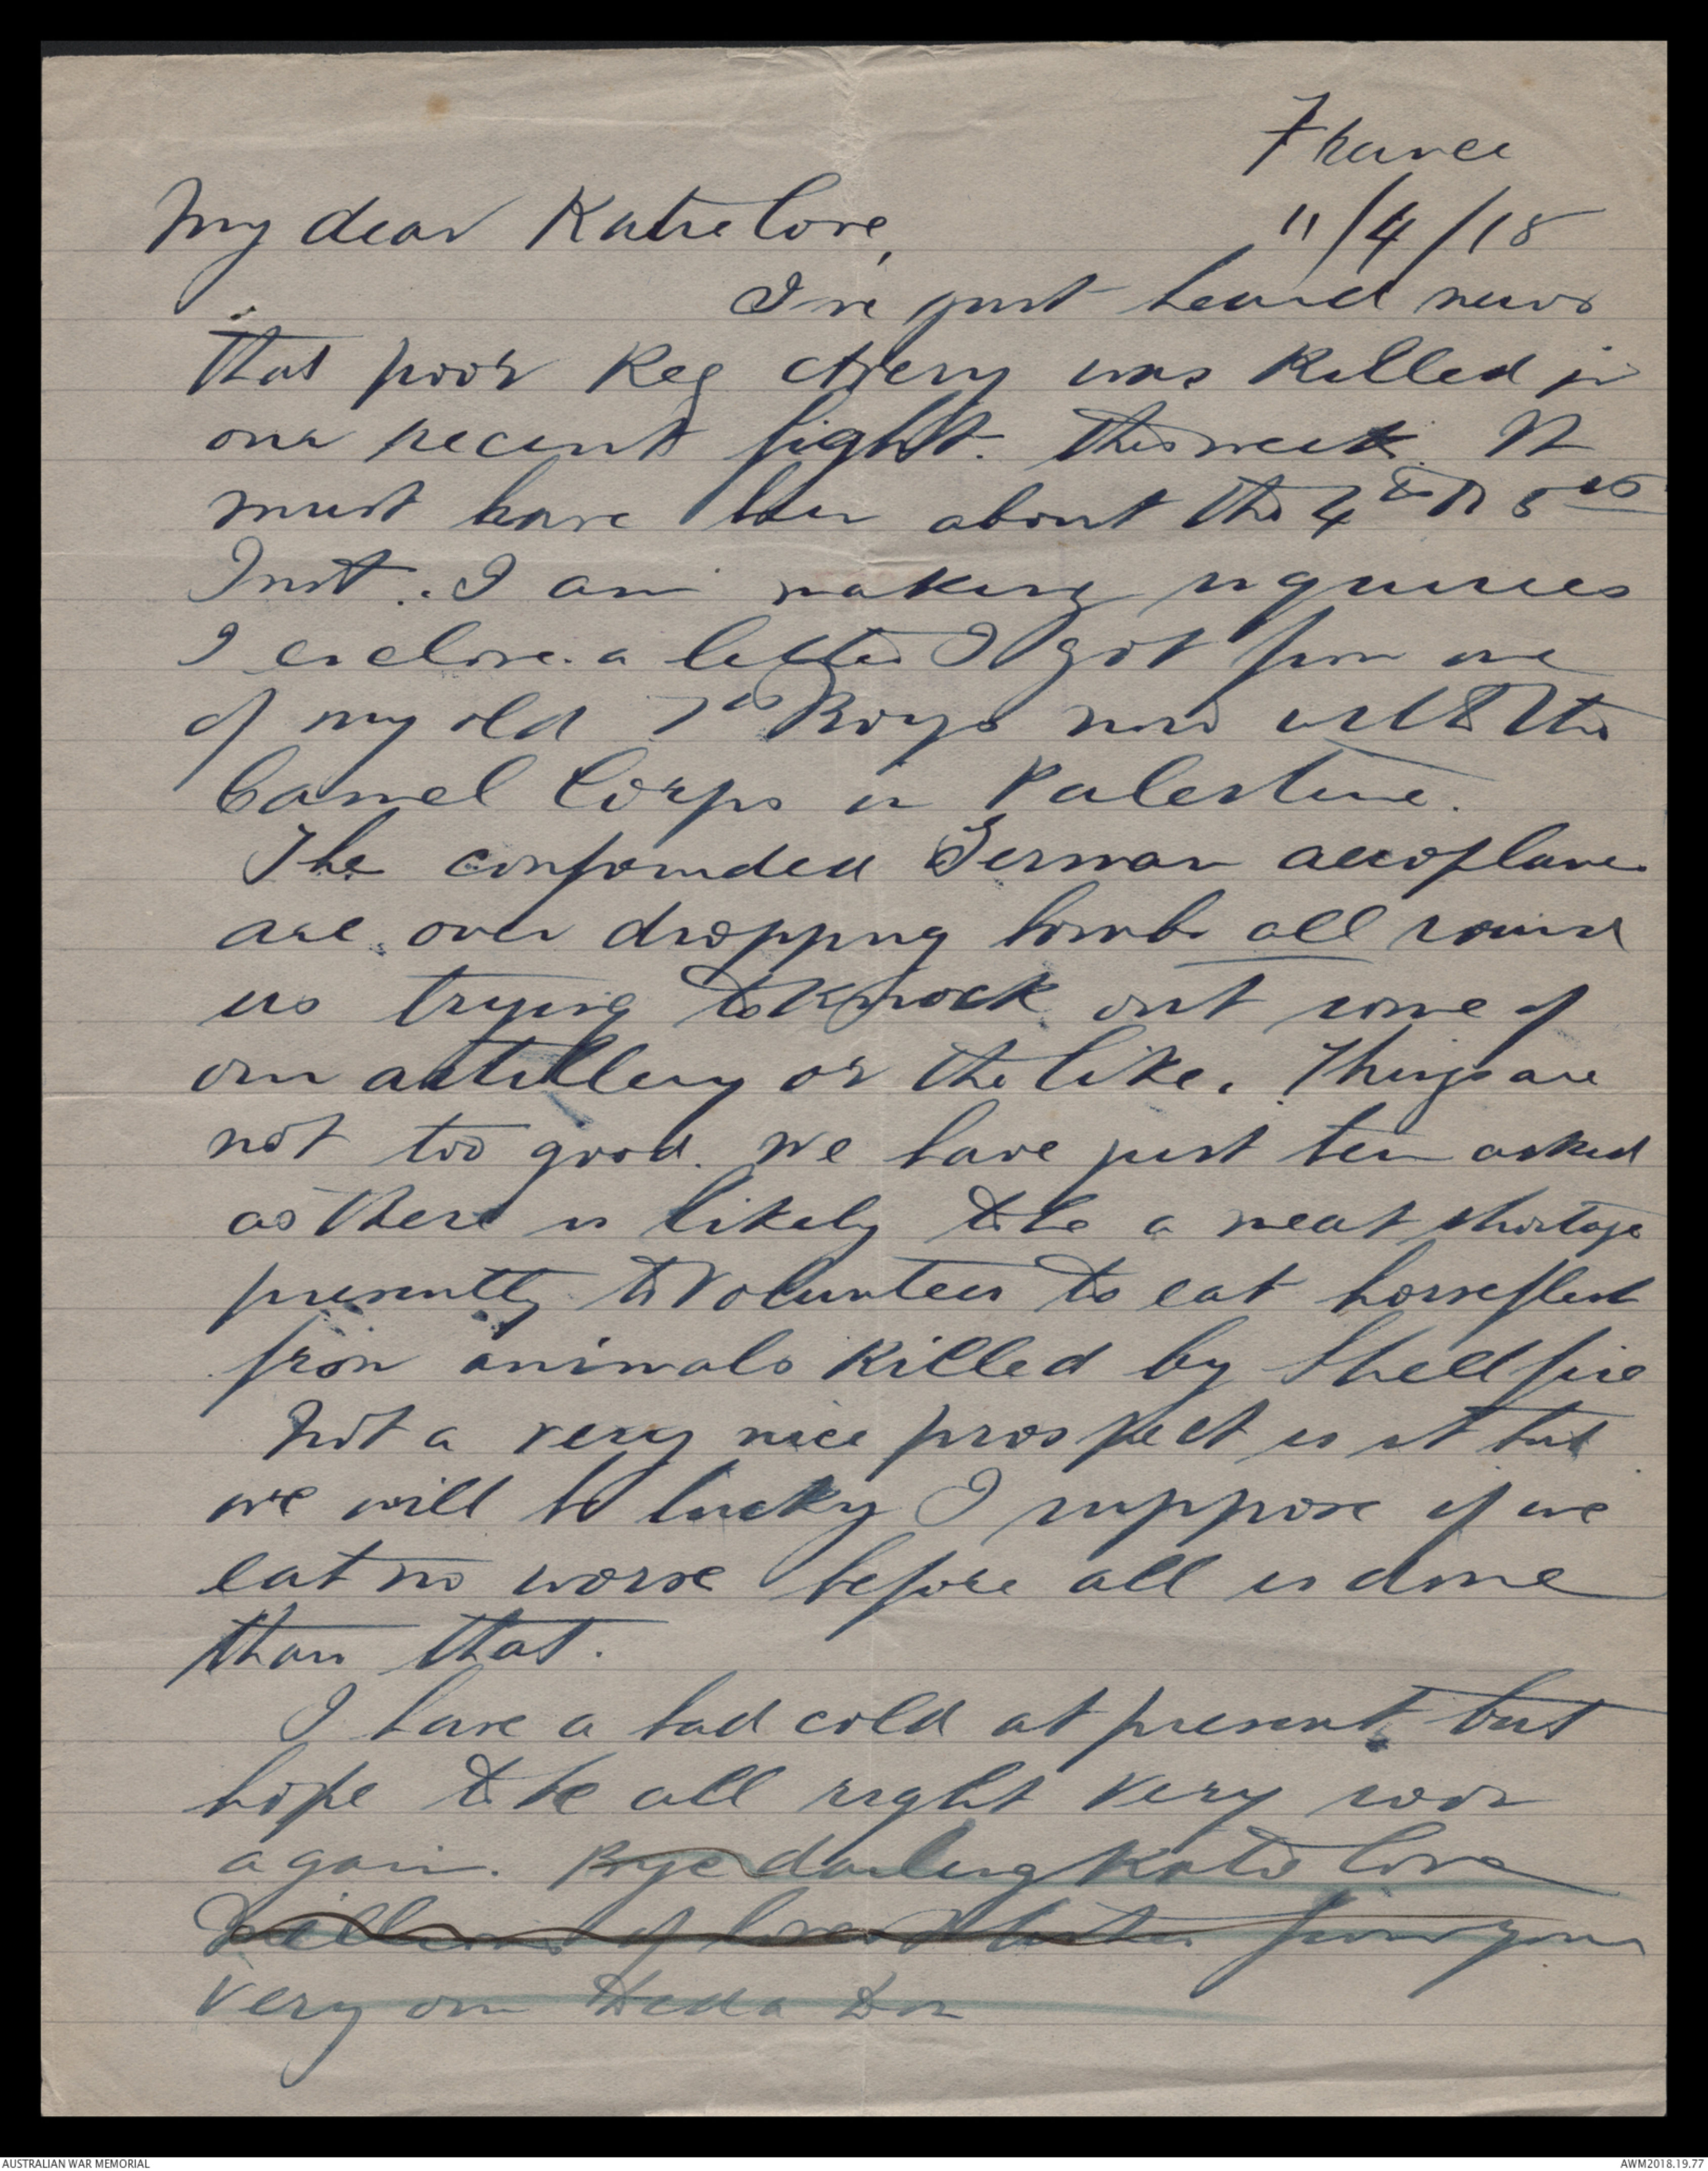 France
11/4/18
My dear Katie love,
I've just heard news
that poor Reg was killed in
our recent fight this week. It
must have been about the 4th or 5th
Inst. I am making inquiries
I enclose a letter I got from one
of my old 7th Boys now with the
Camel Corps in Palestine.
The confounded German aeroplanes
are over dropping bombs all round
us trying to knock out some of
our artillery or the like. Things are
not too good. We have just been asked
as there is likely to be a meat shortage
presently to volunteer to eat horseflesh
from animals killed by shell fire
Not a very nice prospect is it but
we will be lucky I suppose if we
eat no worse before all is done
than that.
I have a bad cold at present but
hope to be all right very soon
again. Bye darling Katie love
Millions of love from your
very own Dedda Don
AUSTRALIAN WAR MEMORIAL
AWM2018.19.77